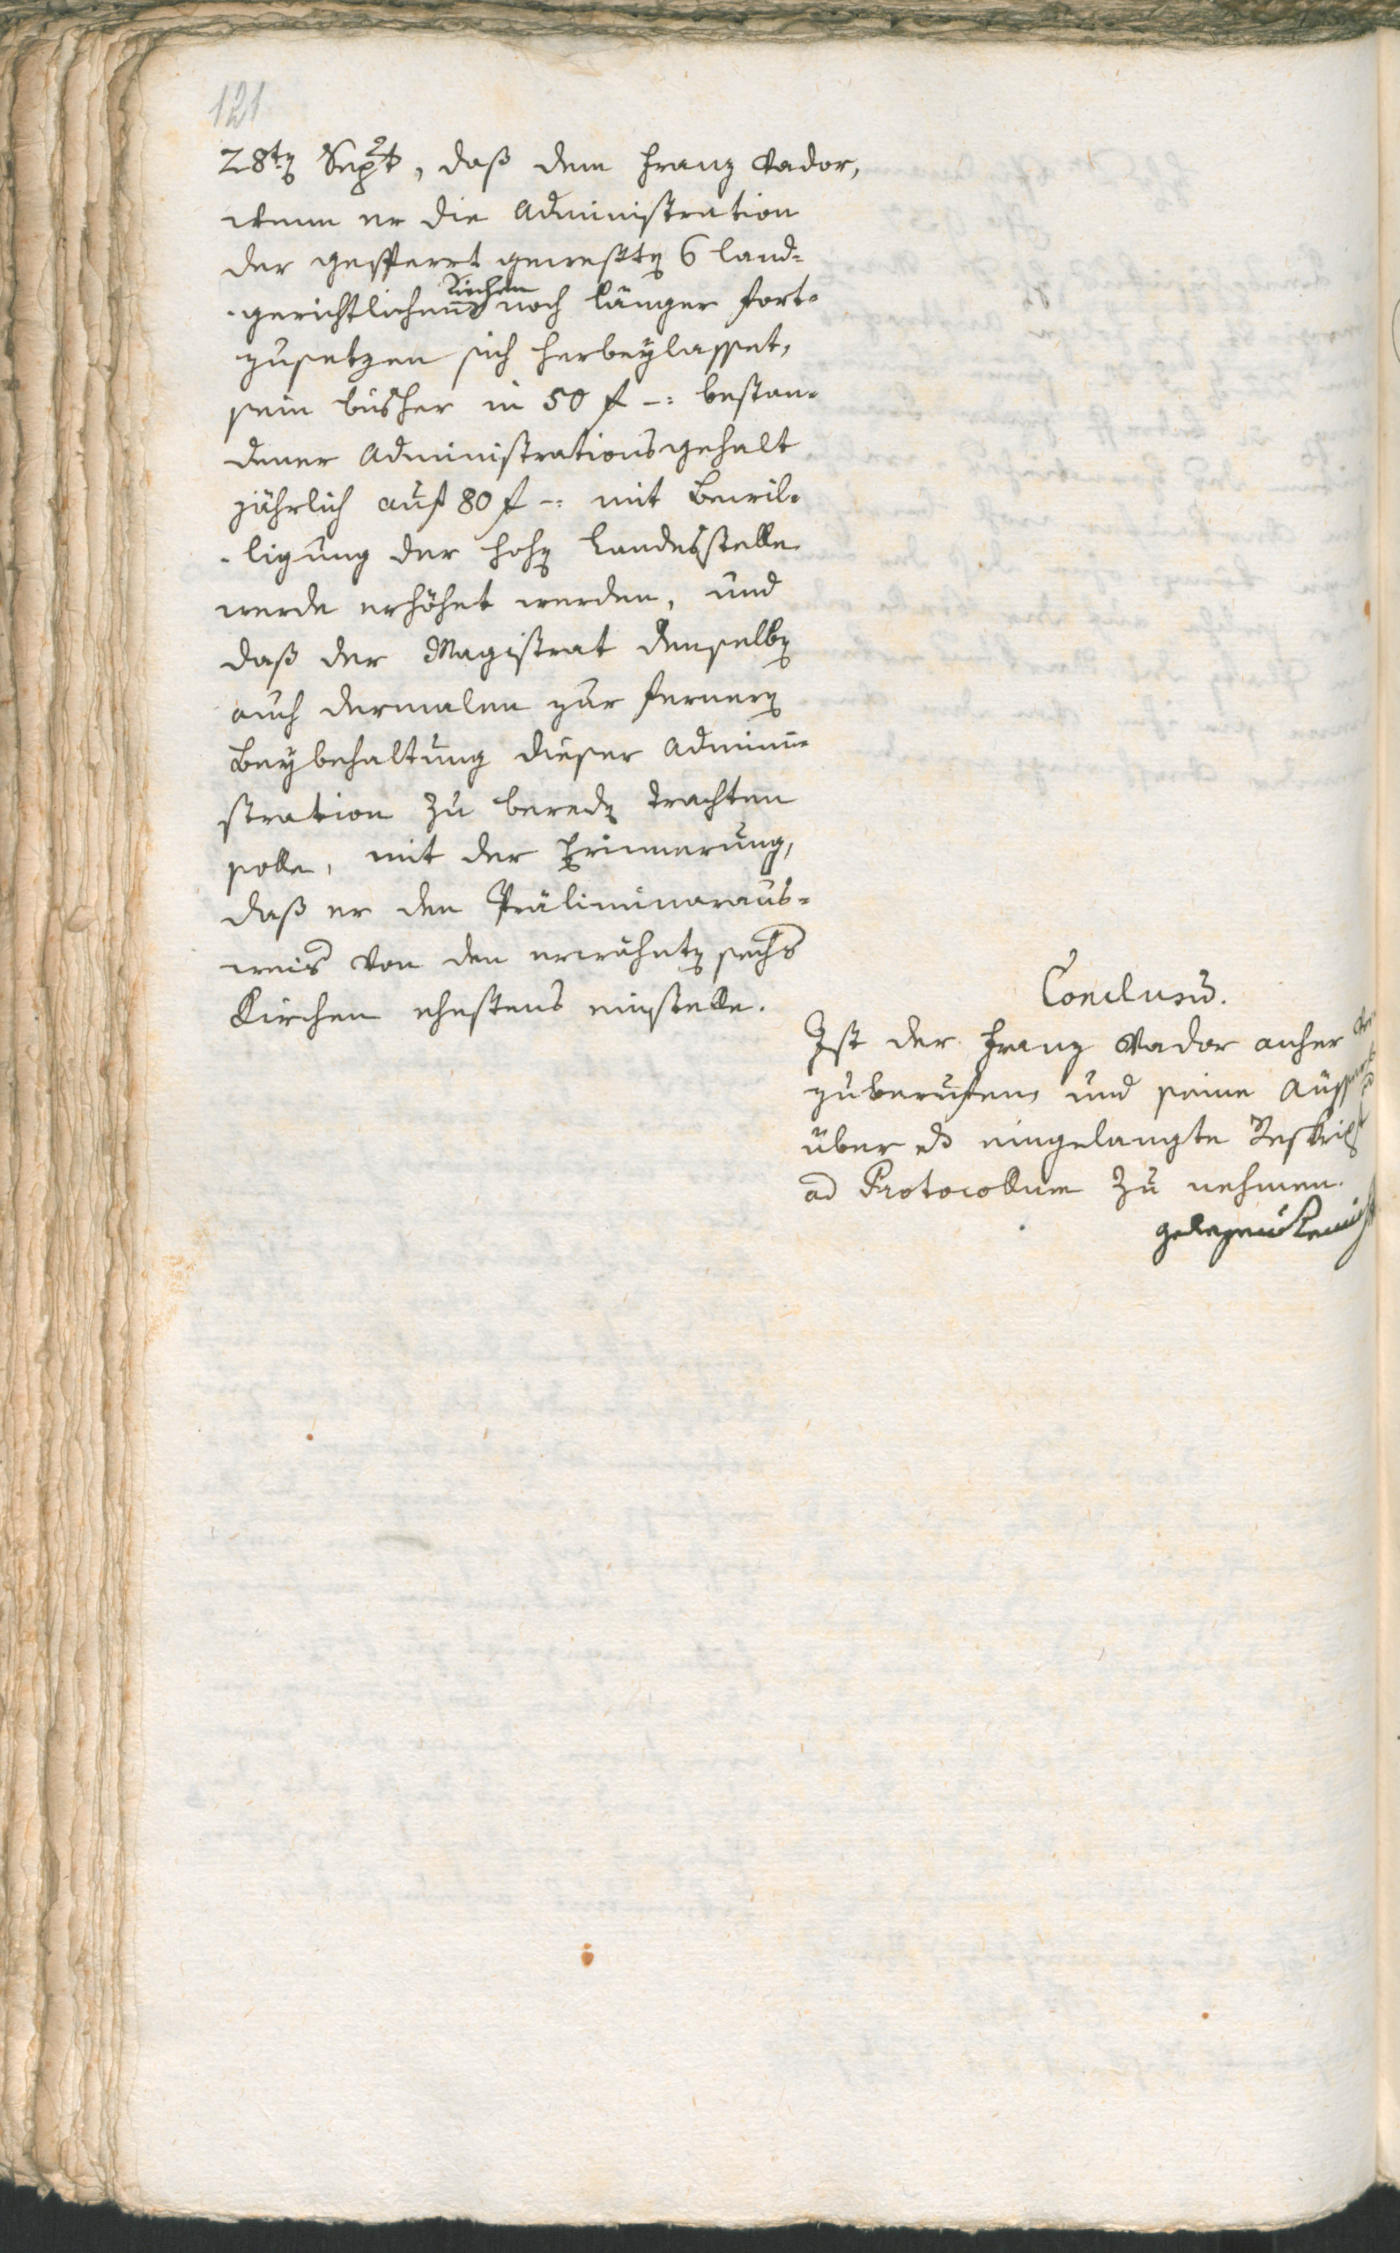 121
28ten Sept, daß dem Franz Vador,
wenn er die Administration
der gesperrt gewesten 6 land=
gerichtlichen Kirchen noch länger fort=
zusetzen sich herbeylasset,
sein bisher in 50 f -: bestan=
dener Administrationsgehalt
jährlich auf 80 f -: mit Bewil=
ligung der hohen Landesstelle
werde erhöhet werden, und
daß der Magistrat denselben
auch dermalen zur fernern
Beybehaltung dieser Admini=
stration zu bereden trachten
solle, mit der Erinnerung,
daß er den Präliminaraus=
weis von den erwähnten sechs
Kirchen ehestens einstelle.
Conclusum.
Ist der Franz Vador anher
zuberufen, und seine
über das eingelangte Reskript
ad Protocollum zu nehmen.